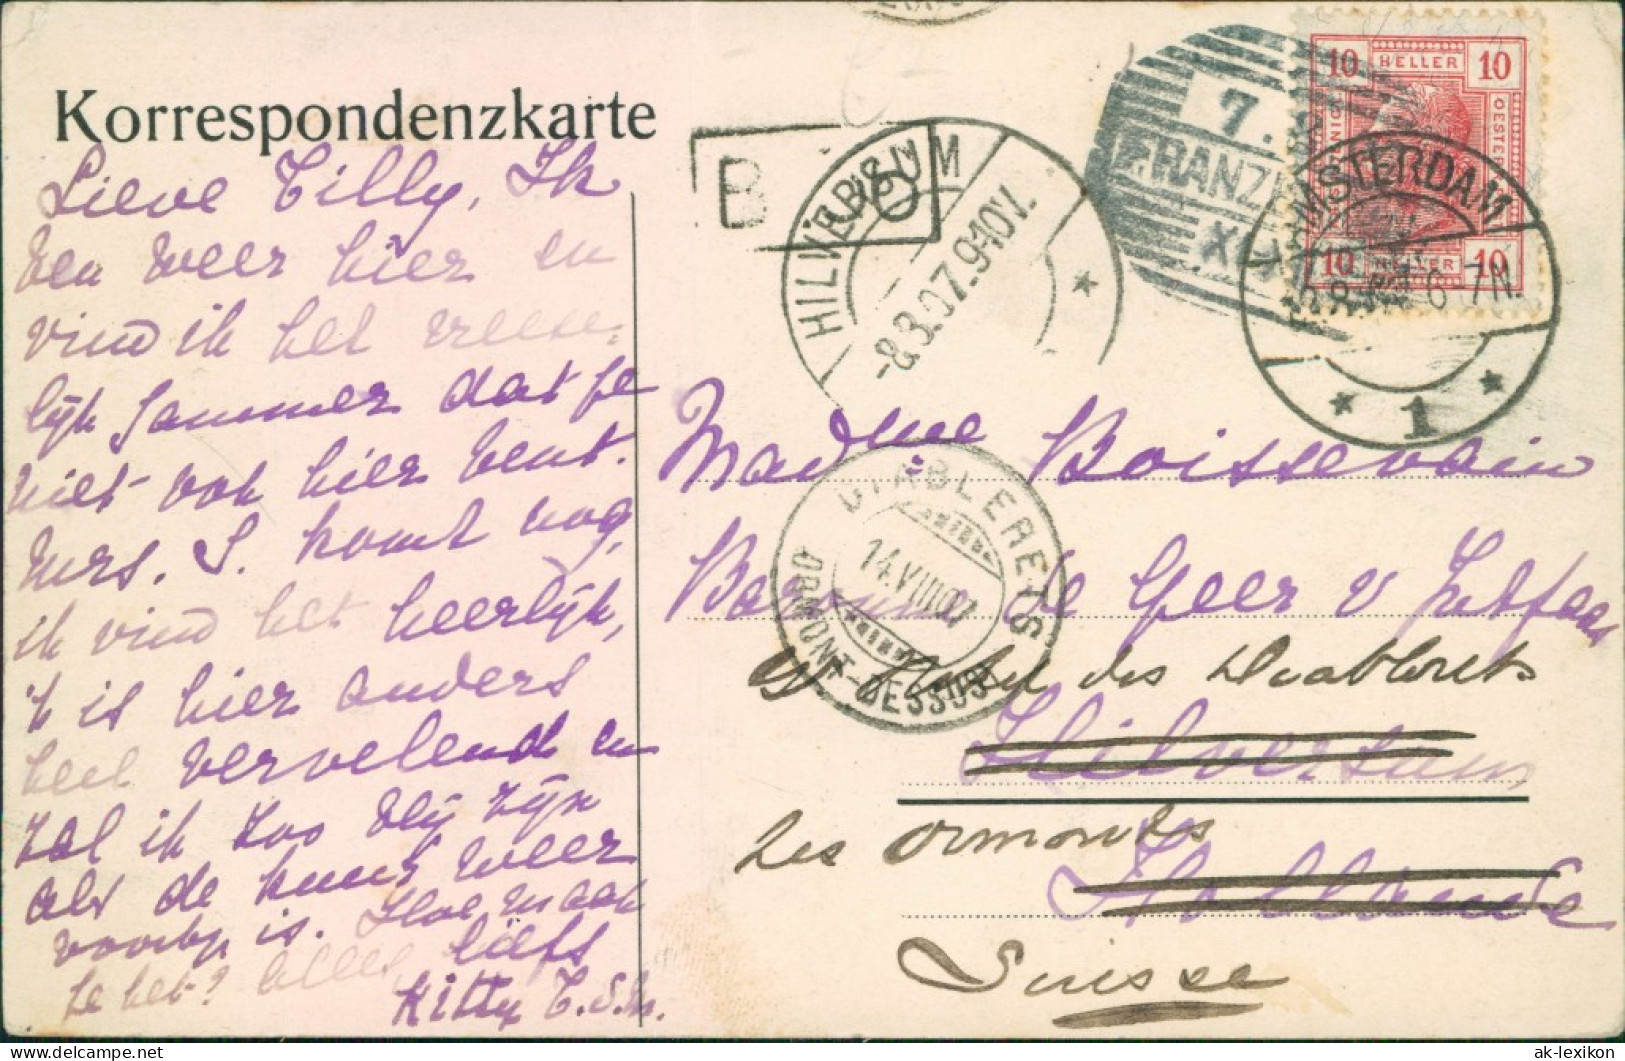 Korrespondenzkarte
Lieve Tilly, Ik
ben weer hier en
vind ik het vreese-
lijk jammer dat je
niet ook hier bent.
Mrs. S. komt nog,
ik vind het heerlijk,
't is hier anders
heel vervelend en
zal ik zoo blij zijn
als de kuur weer
voorbij is. Hoe maak
je het? Alles liefs
Kitty
10 HELLER 10
10 HELLER 10
7.
FRANZ
AMSTERDAM
1
HILVERSUM
-8.8.07.9-10V.
B
Madme Boissevain
Baronne de Geer v Jutfaas
Hotel des Diablerets
Hilversum
Les Ormonts
Hollande
Suisse
DIABLERETS
14.VIII.07
ORMONT-DESSUS
ak-lexikon